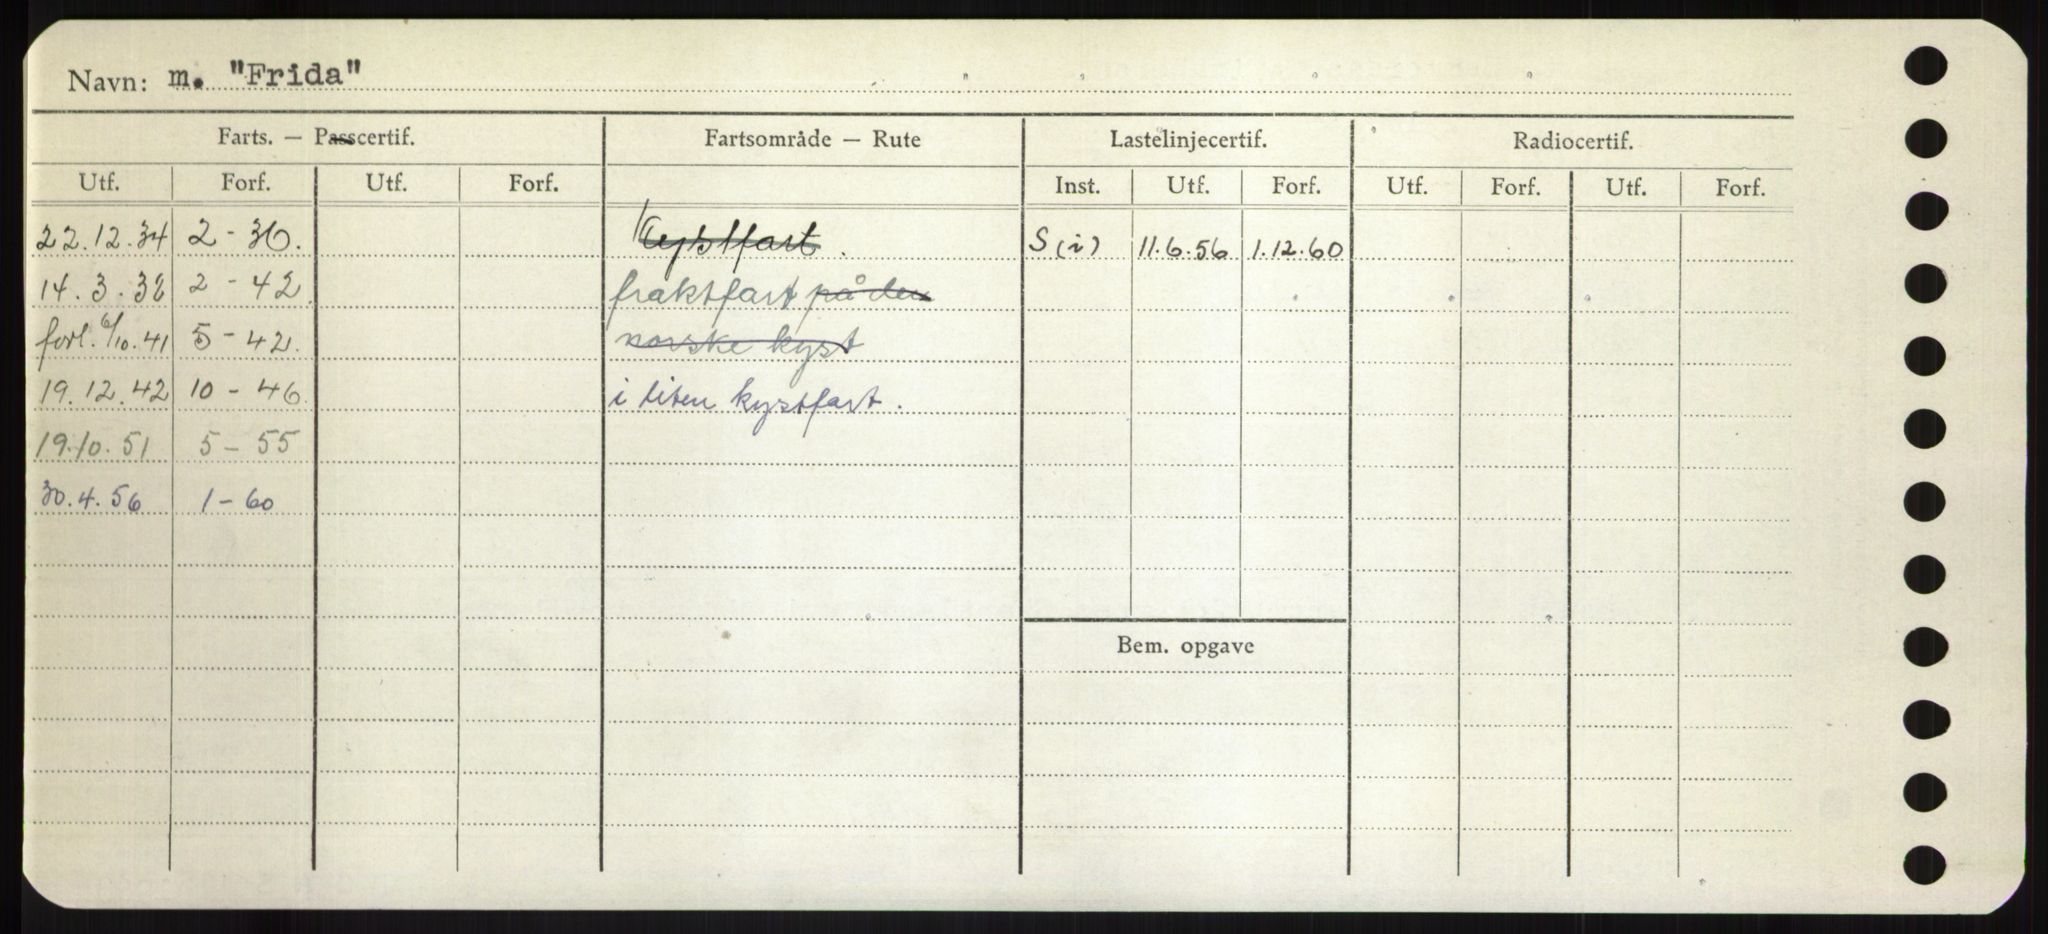 Navn: m. "Frida"
Farts. — Passcertif. Fartsområde — Rute Lastelinjecertif. Radiocertif.
Utf. Forf. Utf. Forf. Inst. Utf. Forf. Utf. Forf. Utf. Forf.
22.12.34 2-36. Kystfart. S(i) 11.6.56 1.12.60
14.3.38 2-42 fraktfart på den
forl. 6/10.41 5-42. norske kyst
19.12.42 10-46. i liten kystfart.
19.10.51 5-55
30.4.56 1-60
Bem. opgave